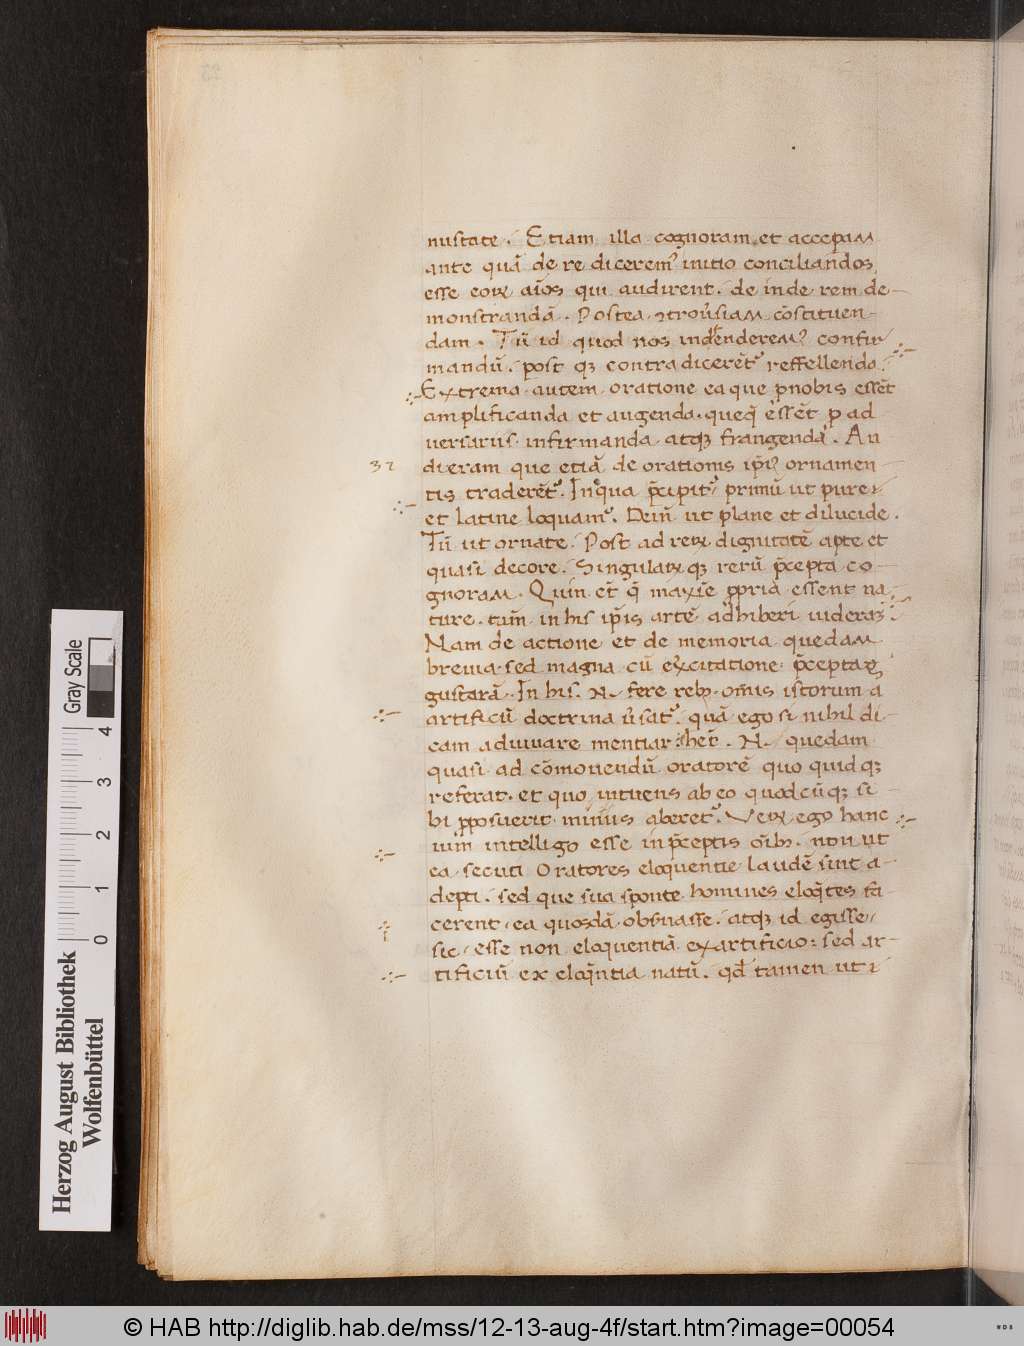 nustate. Etiam illa cognoram et accepiam
ante quã de re dicerem⁹ initio conciliandos
esse eoꝝ aĩos qui audirent. de inde rem de
monstrandã. Postea ɔtrouˀsiam cõstituen
dam. Tũ id quod nos indˀenderem⁹ confir
mandũ. post qꝫ contra dicerẽt᷑ reffellenda.
Extrema autem oratione ea que ꝓ nobis essẽt
amplificanda et augenda. queq̃ essẽt ꝓ ad
uersariis infirmanda atqꝫ frangenda. Au
32 dieram que etiã de orationis ip̃i⁹ ornamen
tis traderẽt᷑. In qua p̃cipit᷑ primũ ut pure
et latine loquamˀ. Dein̄ ut plane et dilucide.
Tũ ut ornate. Post ad reꝝ dignitatẽ apte et
quasi decore. Singulaꝝ qꝫ rerũ p̃cepta co
gnoram. Quin et̃ q̃ maxĩe ꝓpria essent na
ture. tum̃ in his ip̃is artẽ adhiberi uiderã.
Nam de actione et de memoria quedam
breuia sed magna cũ exˀcitatione p̃cepta
gustarã. In his .N. fere rebꝫ om̃is istorum a
artificũ doctrina ũsat᷑. quã ego si nihil di
cam adiuuare mentiar. het̃. N. quedam
quasi ad cõmonendũ oratorẽ quo quidqꝫ
referat. et quo intuens ab eo quodcũqꝫ si
bi ꝓposuerit minus aberet᷑. Veꝝ ego hanc
uim intelligo esse in p̃ceptis oĩbꝫ. non ut
ea secuti oratores eloquentie laudẽ sint a
depti. sed que sua sponte homines eloq̃tes fa
cerent. ea quosdã obs̃uasse. atqꝫ id egisse.
sic esse non eloquentiã ex artificio: sed ar
tificiũ ex eloq̃ntia natũ. qd̃ tamen ut
Herzog August Bibliothek
Wolfenbüttel
Gray Scale
0 1 2 3 4
© HAB http://diglib.hab.de/mss/12-13-aug-4f/start.htm?image=00054